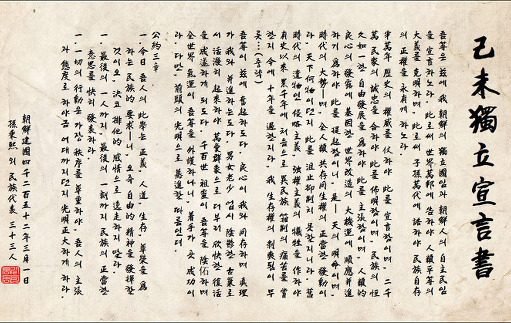 己未獨立宣言書
吾等은 玆에 我 朝鮮의 獨立國임과 朝鮮人의 自主民임
을 宣言하노라 此로써 世界萬邦에 告하야 人類平等의
大義를 克明하며 此로써 子孫萬代에 誥하야 民族自存
의 正權을 永有케 하노라
半萬年 歷史의 權威를 仗하야 此를 宣言함이며 二千
萬 民衆의 誠忠을 合하야 此를 佈明함이며 民族의 恒
久如一한 自由發展을 爲하야 此를 主張함이며 人類的
良心의 發露에 基因한 世界改造의 大機運에 順應幷進
하기 爲하야 此를 提起함이니 是ㅣ 天의 明命이며
時代의 大勢며 全人類 共存同生權의 正當한 發動이
라 天下何物이던지 此를 沮止抑制치 못할지니라 舊
時代의 遺物인 侵略主義 强權主義의 犧牲을 作하야
有史以來 累千年에 처음으로 異民族 箝制의 痛苦를 嘗
한지 今에 十年을 過한지라 我 生存權의 剝喪됨이 무
릇...(중략)
吾等이 玆에 奮起하도다 良心이 我와 同存하며 眞理
가 我와 幷進하는도다 男女老少 업시 陰鬱한 古巢로
서 活潑히 起來하야 萬彙群象으로 더부러 欣快한 復活
을 成遂하게 되도다 千百世 祖靈이 吾等을 陰佑하며
全世界 氣運이 吾等을 外護하나니 着手가 곧 成功이
라. 다만, 前頭의 光明으로 驀進할 따름인뎌.
公約三章
一. 今日 吾人의 此擧는 正義 人道 生存 尊榮을 爲
하는 民族的 要求니 오즉 自由的 精神을 發揮할
것이오, 決코 排他的 感情으로 逸走하지 말라
一. 最後의 一人까지, 最後의 一刻까지 民族의 正當한
意思를 快히 發表하라
一. 一切의 行動은 가장 秩序를 尊重하야, 吾人의 主張
과 態度로 하야금 어데까지던지 光明正大하게 하라
朝鮮建國四千二百五十二年三月 一日
孫秉熙 외 民族代表 三十三人